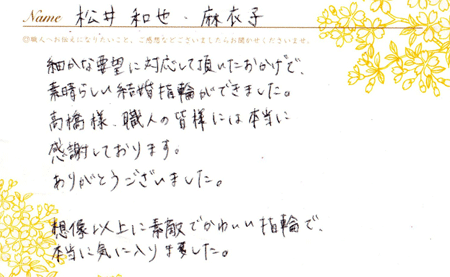 Name 松井 和也・麻衣子
◎職人へお伝えになりたいこと、ご感想などございましたらお聞かせくださいませ。
細かな要望に対応して頂いたおかげで、
素晴らしい結婚指輪ができました。
高橋様、職人の皆様には本当に
感謝しております。
ありがとうございました。
想像以上に素敵でかわいい指輪で、
本当に気に入りました。